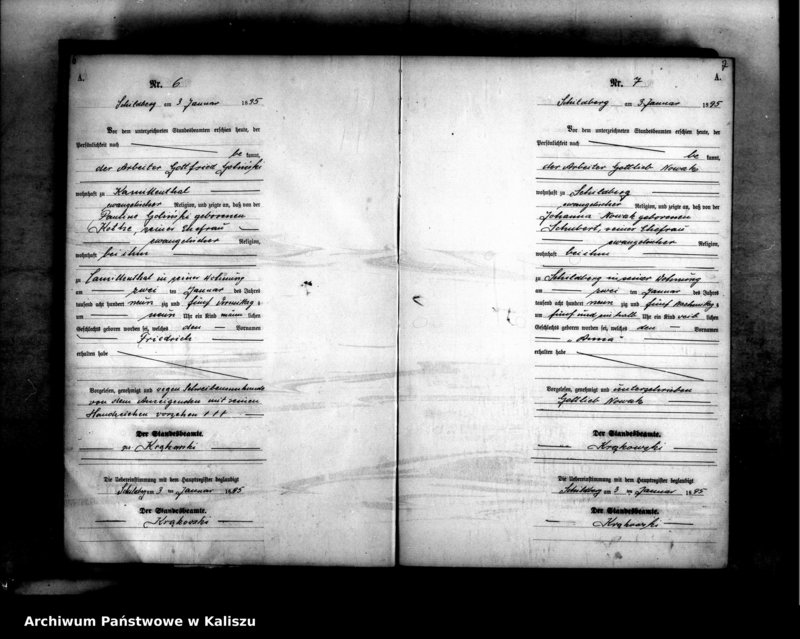 6
A.
Nr. 6
Schildberg am 3 Januar 1895
Vor dem unterzeichneten Standesbeamten erschien heute, der
Persönlichkeit nach
be kannt,
der Arbeiter Gottfried
wohnhaft zu
evangelischer Religion, und zeigte an, daß von der
Pauline geborenen
seiner Ehefrau
evangelischer Religion,
wohnhaft bei ihm
zu in seiner Wohnung
am zwei ten Januar des Jahres
tausend acht hundert neun zig und fünf Vormittag s
um neun Uhr ein Kind männ lichen
Geschlechts geboren worden sei, welches den Vornamen
Friedrich
erhalten habe
Vorgelesen, genehmigt und wegen Schreibensunkunde
von dem Anzeigenden mit seinen
Handzeichen versehen +++
Der Standesbeamte.
gez Krąkowski
Die Uebereinstimmung mit dem Hauptregister beglaubigt
Schildberg am 3 ten Januar 1895
Der Standesbeamte.
Krąkowski
7
A.
Nr. 7
Schildberg am 3 Januar 1895
Vor dem unterzeichneten Standesbeamten erschien heute, der
Persönlichkeit nach
be kannt,
der Arbeiter Gottlieb Nowak
wohnhaft zu Schildberg
evangelischer Religion, und zeigte an, daß von der
Johanna Nowak geborenen
Schubert, seiner Ehefrau
evangelischer Religion,
wohnhaft bei ihm
zu Schildberg in seiner Wohnung
am zwei ten Januar des Jahres
tausend acht hundert neun zig und fünf Nachmittag s
um fünf und ein halb Uhr ein Kind weib lichen
Geschlechts geboren worden sei, welches den Vornamen
„Anna"
erhalten habe
Vorgelesen, genehmigt und unterschrieben
Gottlieb Nowak
Der Standesbeamte.
Krąkowski
Die Uebereinstimmung mit dem Hauptregister beglaubigt
Schildberg am 3 ten Januar 1895
Der Standesbeamte.
Krąkowski
Archiwum Państwowe w Kaliszu